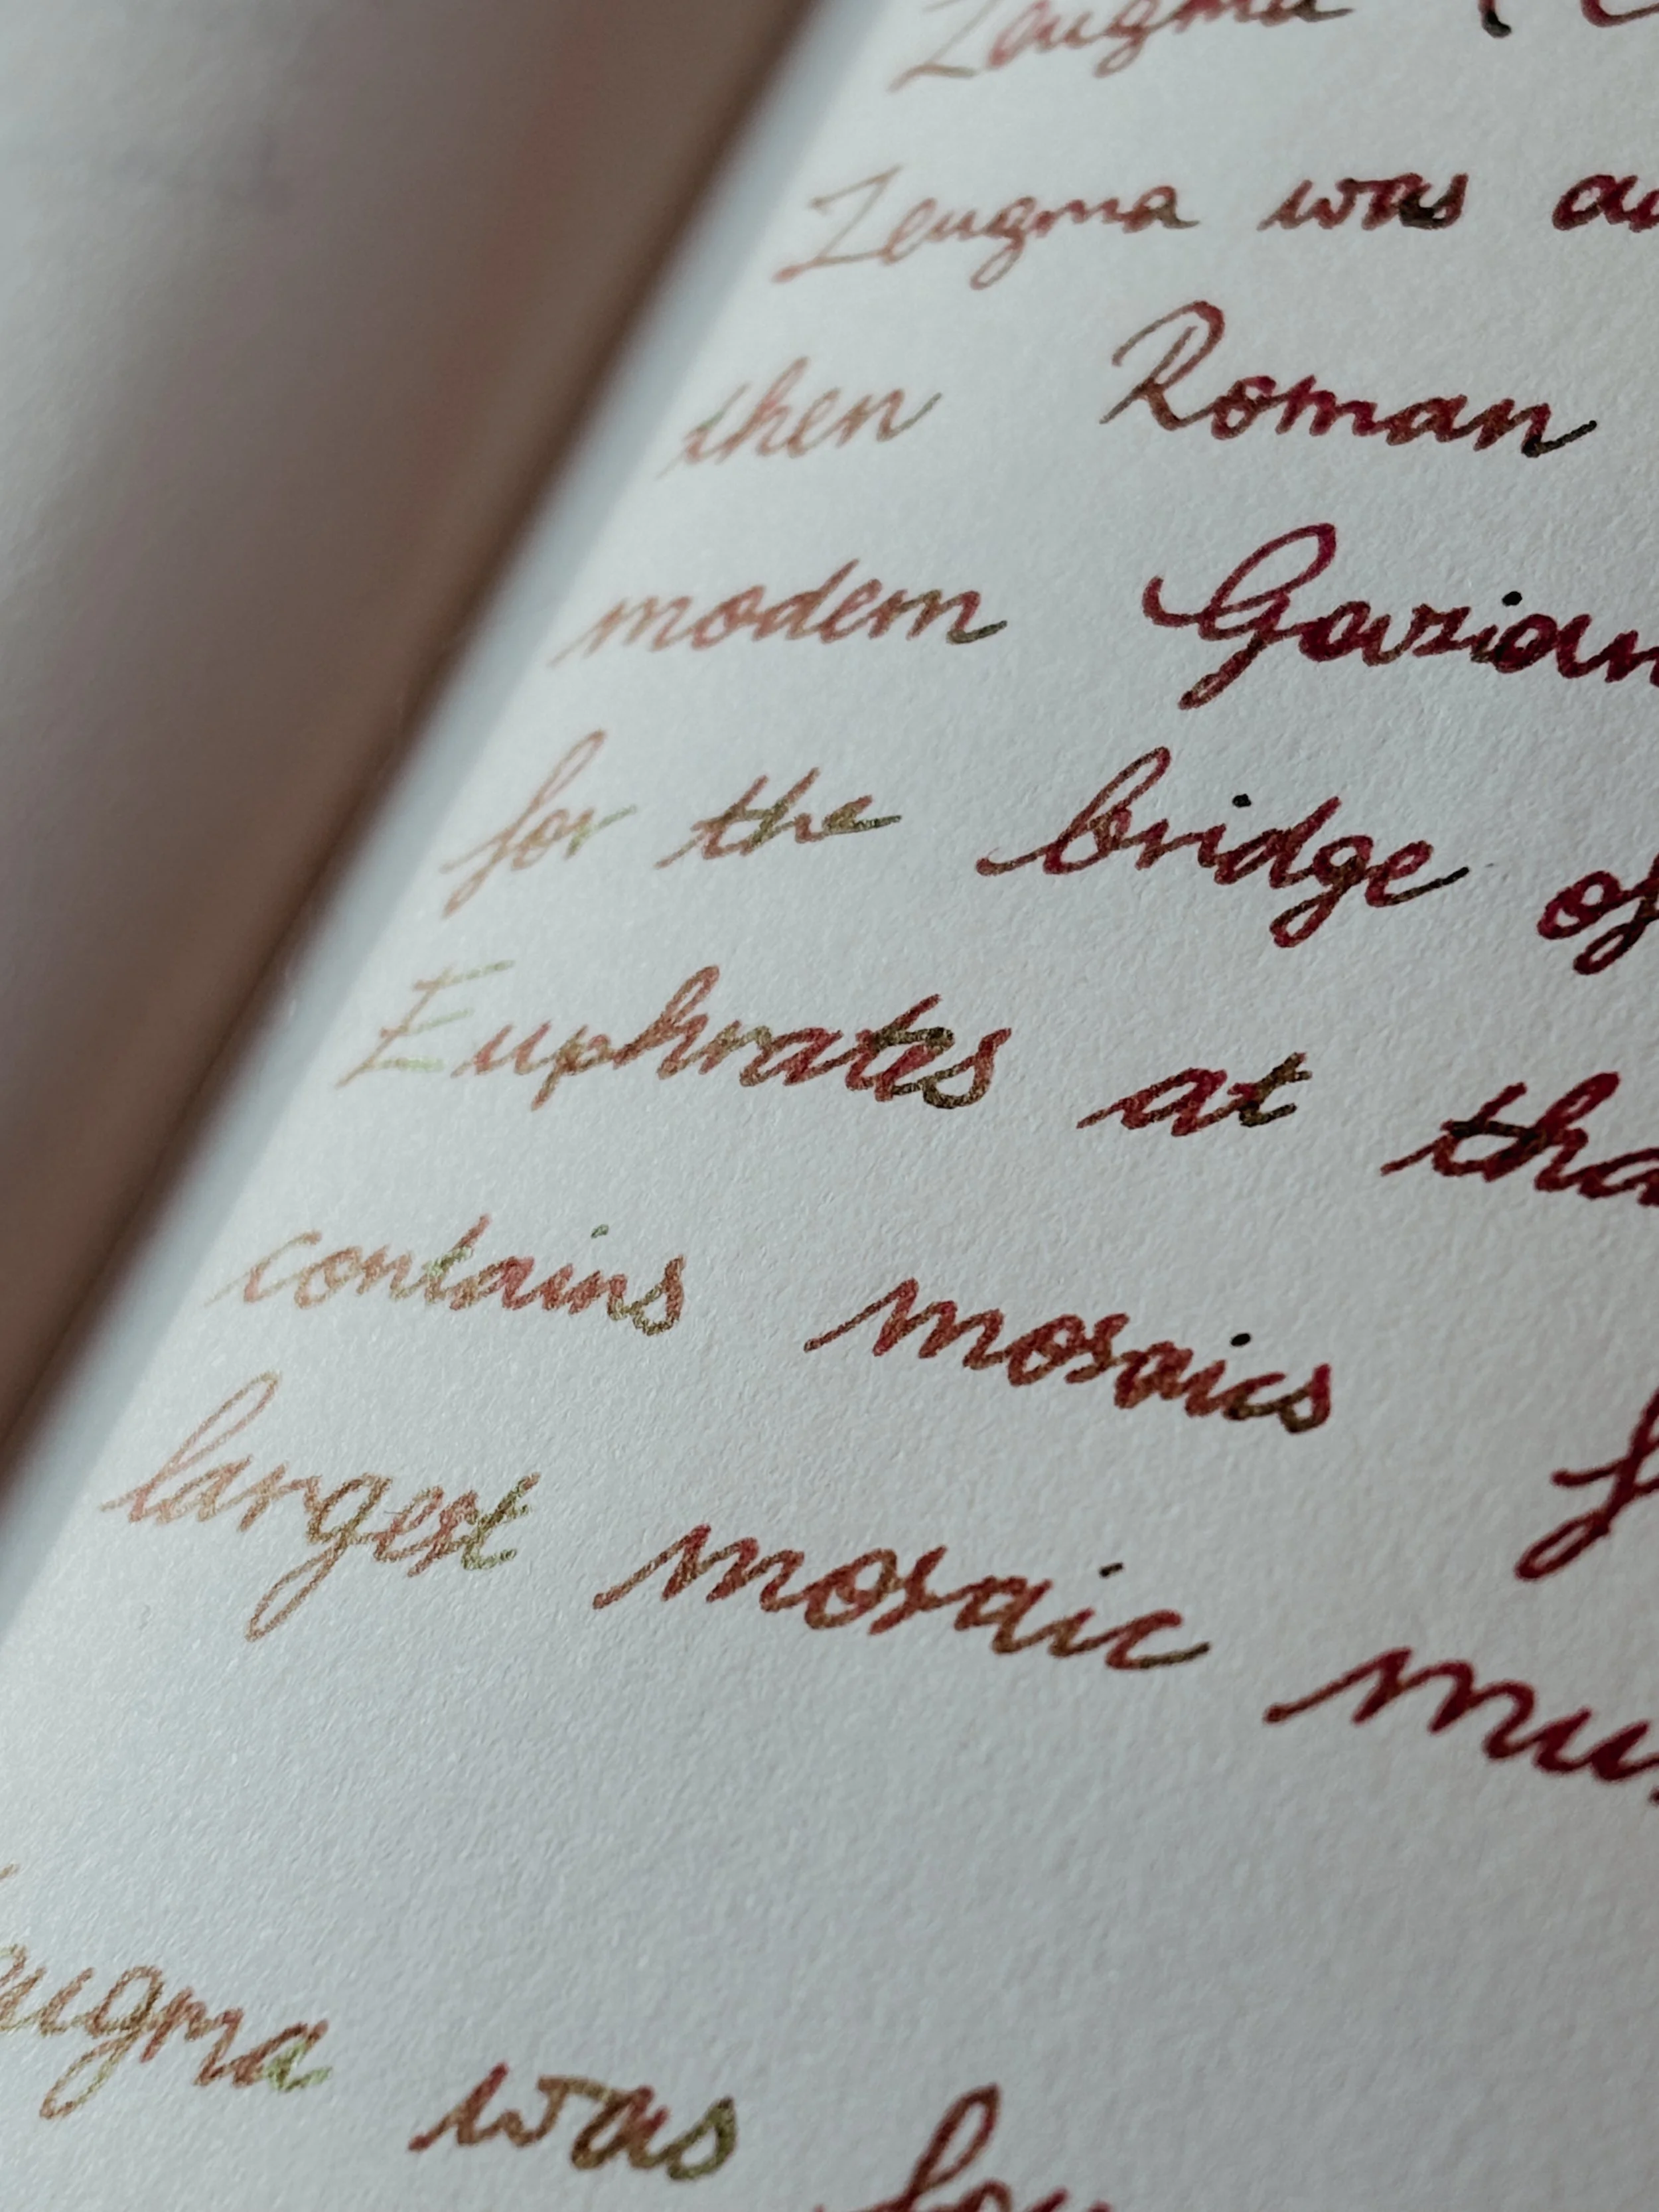 Zeugma
Zeugma was
then Roman
modern
for the bridge of
Euphrates at
contains mosaics
largest mosaic
was